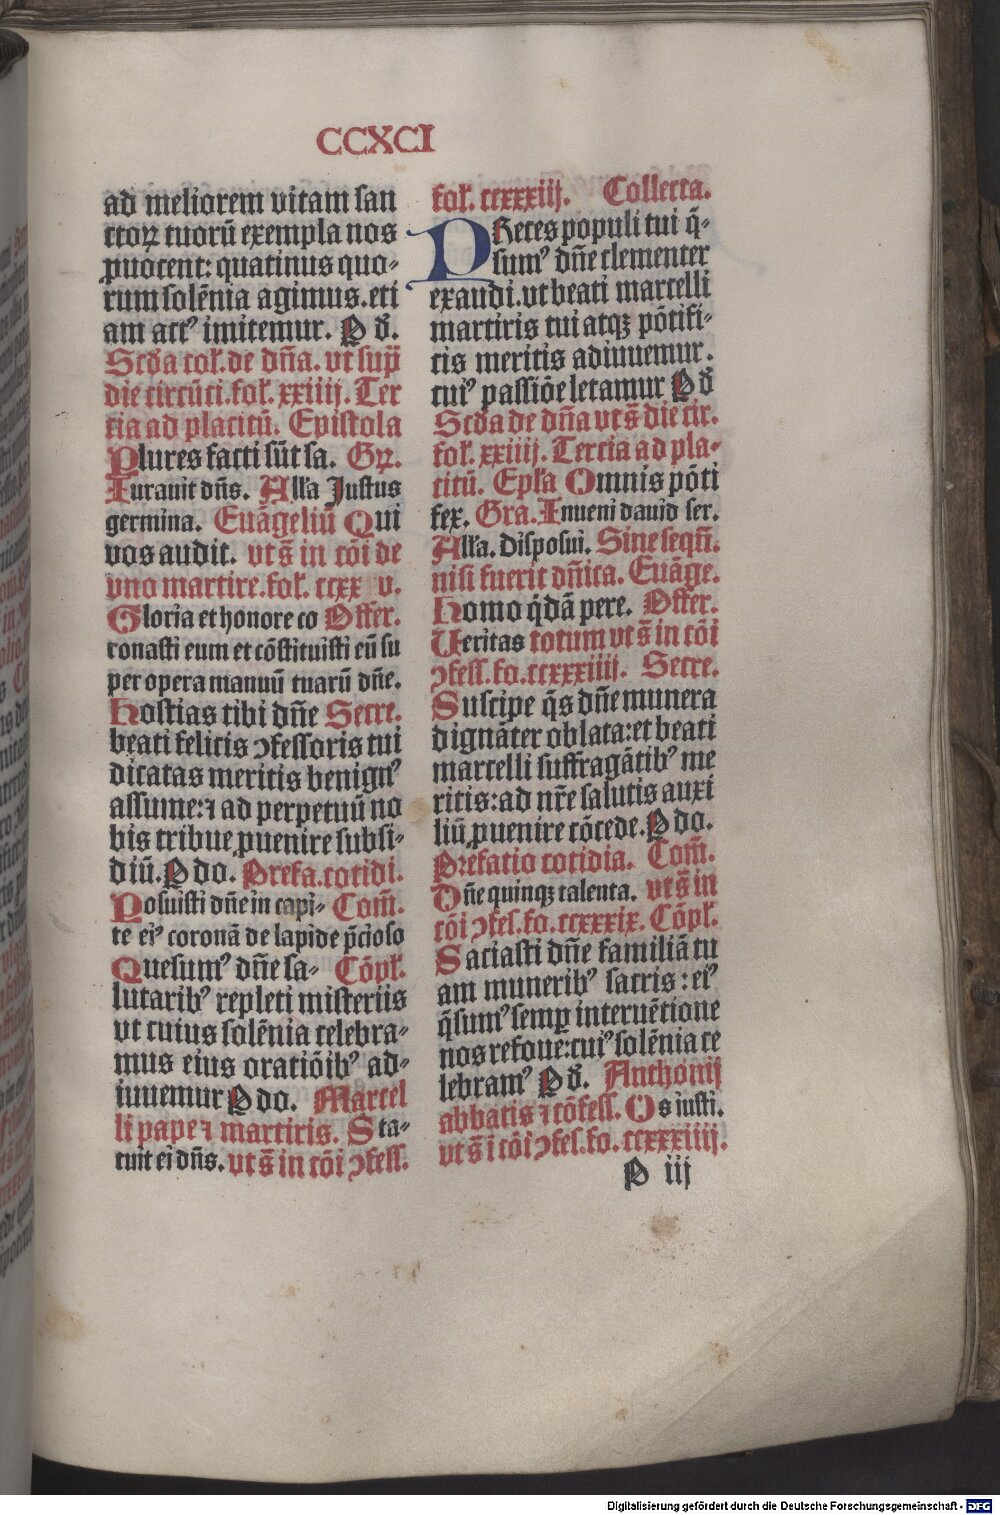 CCXCI
ad meliorem vitam san
ctoꝝ tuorū exempla nos
ꝓuocent: quatinus quo-
rum solēnia agimus. eti
am actꝰ imitemur. P d̄.
Scd̄a col̄. de dn̄a. vt sup̄
die circūci. fol̄. xxiiij. Ter
tia ad placitū. Epistola
Plures facti sūt sa. Gꝝ.
Iurauit dn̄s. All̄a Justus
germina. Euāgeliū Qui
vos audit. vt s̄ in cōi de
vno martire. fol̄. ccxx v.
Gloria et honore co Offer.
ronasti eum et cōstituisti eū su
per opera manuū tuarū dn̄e.
Hostias tibi dn̄e Secre.
beati felicis ↄfessoris tui
dicatas meritis benignꝰ
assume: ⁊ ad perpetuū no
bis tribue ꝓuenire subsi-
diū. P do. Prefa. cotidi.
Posuisti dn̄e in capi- Com̄.
te eiꝰ coronā de lapide p̄cioso
Quesumꝰ dn̄e sa- Cōpl̄.
lutaribꝰ repleti misteriis
vt cuius solēnia celebra-
mus eius oratiōibꝰ ad-
iuuemur P do. Marcel
li pape ⁊ martiris. Sta-
tuit ei dn̄s. vt s̄ in cōi ↄfess.
fol̄. ccxxxiij. Collecta.
PReces populi tui q̄-
sumꝰ dn̄e clementer
exaudi. vt beati marcelli
martiris tui atqꝫ pōtifi-
cis meritis adiuuemur.
cuiꝰ passiōe letamur P d̄
Scd̄a de dn̄a vt s̄ die cir.
fol̄. xxiiij. Tercia ad pla-
citū. Epl̄a Omnis pōti
fex. Gra. Inueni dauid ser.
All̄a. Disposui. Sine seqn̄.
nisi fuerit dn̄ica. Euāge.
Homo q̇dā pere. Offer.
Ueritas totum vt s̄ in cōi
ↄfess. fo. ccxxxiiij. Secre.
Suscipe q̄s dn̄e munera
dignāter oblata: et beati
marcelli suffragātibꝰ me
ritis: ad nr̄e salutis auxi
liū ꝓuenire cōcede. P do.
Prefatio cotidia. Com̄.
Dn̄e quinqꝫ talenta. vt s̄ in
cōi ↄfes. fo. ccxxxix. Cōpl̄.
Saciasti dn̄e familiā tu
am muneribꝰ sacris: eiꝰ
q̄sumꝰ semꝑ interuētione
nos refoue: cuiꝰ solēnia ce
lebramꝰ P d̄. Anthonij
abbatis ⁊ cōfess. Os iusti.
vt s̄ ī cōi ↄfes. fo. ccxxxiiij.
P iij
Digitalisierung gefördert durch die Deutsche Forschungsgemeinschaft - DFG